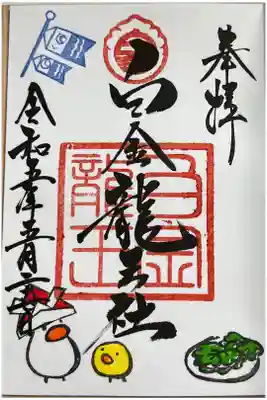 奉拝
白金龍王社
令和五年五月二日
白金
龍王